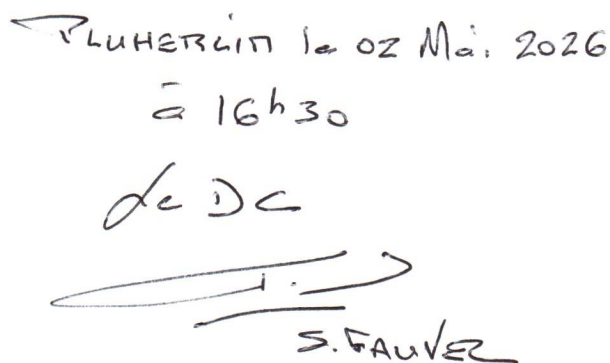 PLUHERLIN le 02 Mai 2026
à 16h30
Le DC
S. FAUVEL